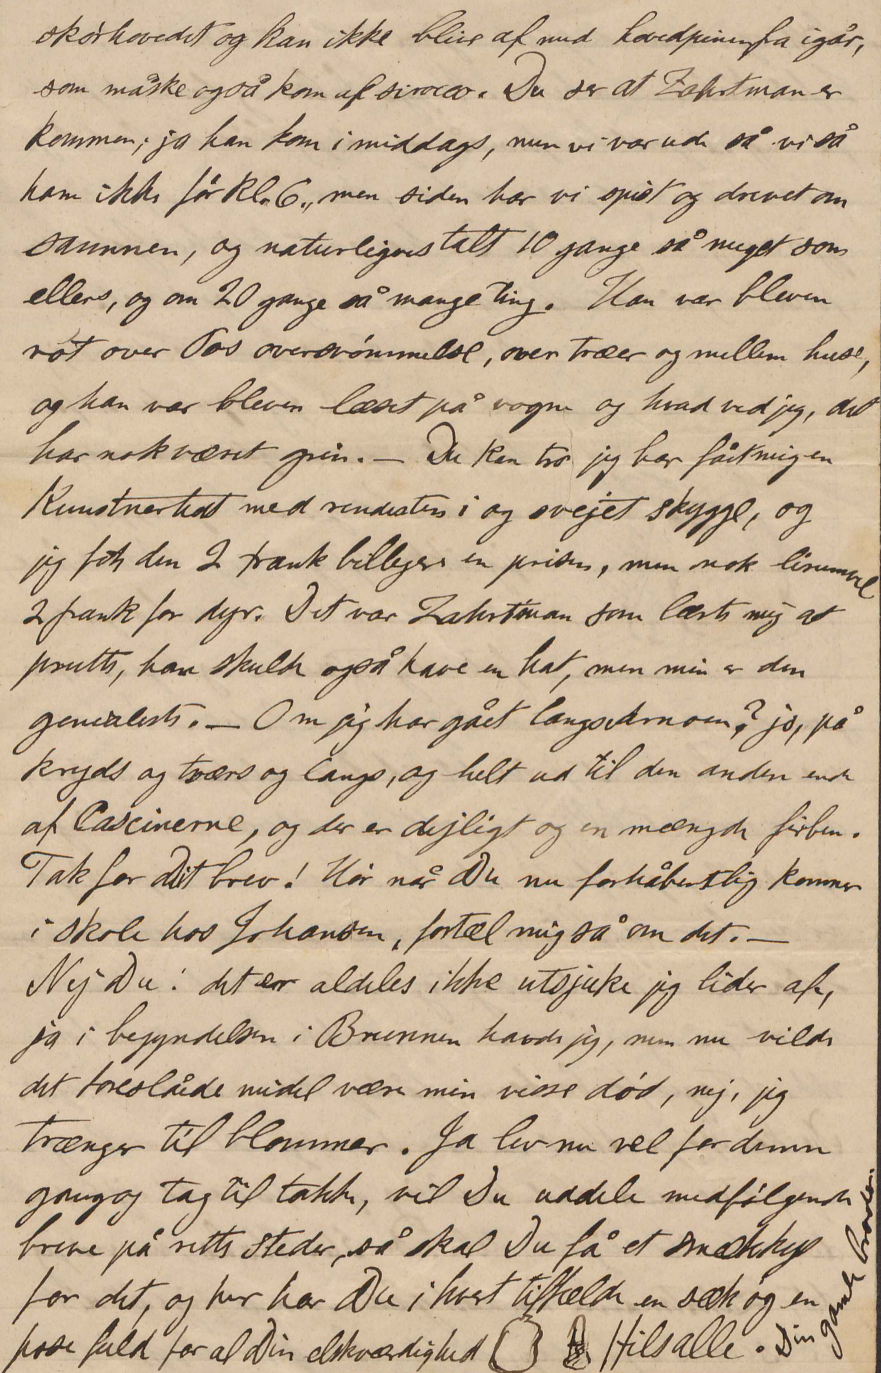 skørhovedet og kan ikke blive af med hovedpinen fra igår,
som måske også kom af sirocco. Du ser at Zahrtman er
kommen; ja han kom i middags, men vi var ude så vi så
ham ikke før Kl. 6., men siden har vi spist og drevet om
sammen, og naturligvis talt 10 gange så meget som
ellers, og om 20 gange så mange ting. Han var bleven
rot over Pos oversvömmelse, over træer og mellem huse,
og han var bleven læsset på vogne og hvad ved jeg, det
har nok været grin. — Du kan tro jeg har fået mig en
Kunstnerhat med rendesten i og svejet skygge, og
jeg fik den 2 frank billigere en prisen, men nok
2 frank for dyr. Det var Zahrtman som lærte mig at
prutte, han skulde også have en hat, men min er den
genialeste. — Om jeg har gået langs Arnoen? jo, på
kryds og tværs og langs, og helt ud til den anden ende
af Cascinerne, og der er dejligt og en mængde firben.
Tak for Dit brev! Hør når Du nu forhåbentlig kommer
i skole hos Johansen, fortæl mig så om det. —
Nej Du! det er aldeles ikke utsjuke jeg lider af,
ja i begyndelsen i Brunnen havde jeg, men nu vilde
det foreslåede middel være min visse død, nej, jeg
trænger til blommer. Ja lev nu vel for denne
gang og tag til takke, vil Du uddele medfølgende
breve på rette steder, så skal Du få et smækkys
for det, og her har Du i hvert tilfælde en sæk og en
pose fuld for al Din elskværdighed Hils alle. Din
gamle broder.